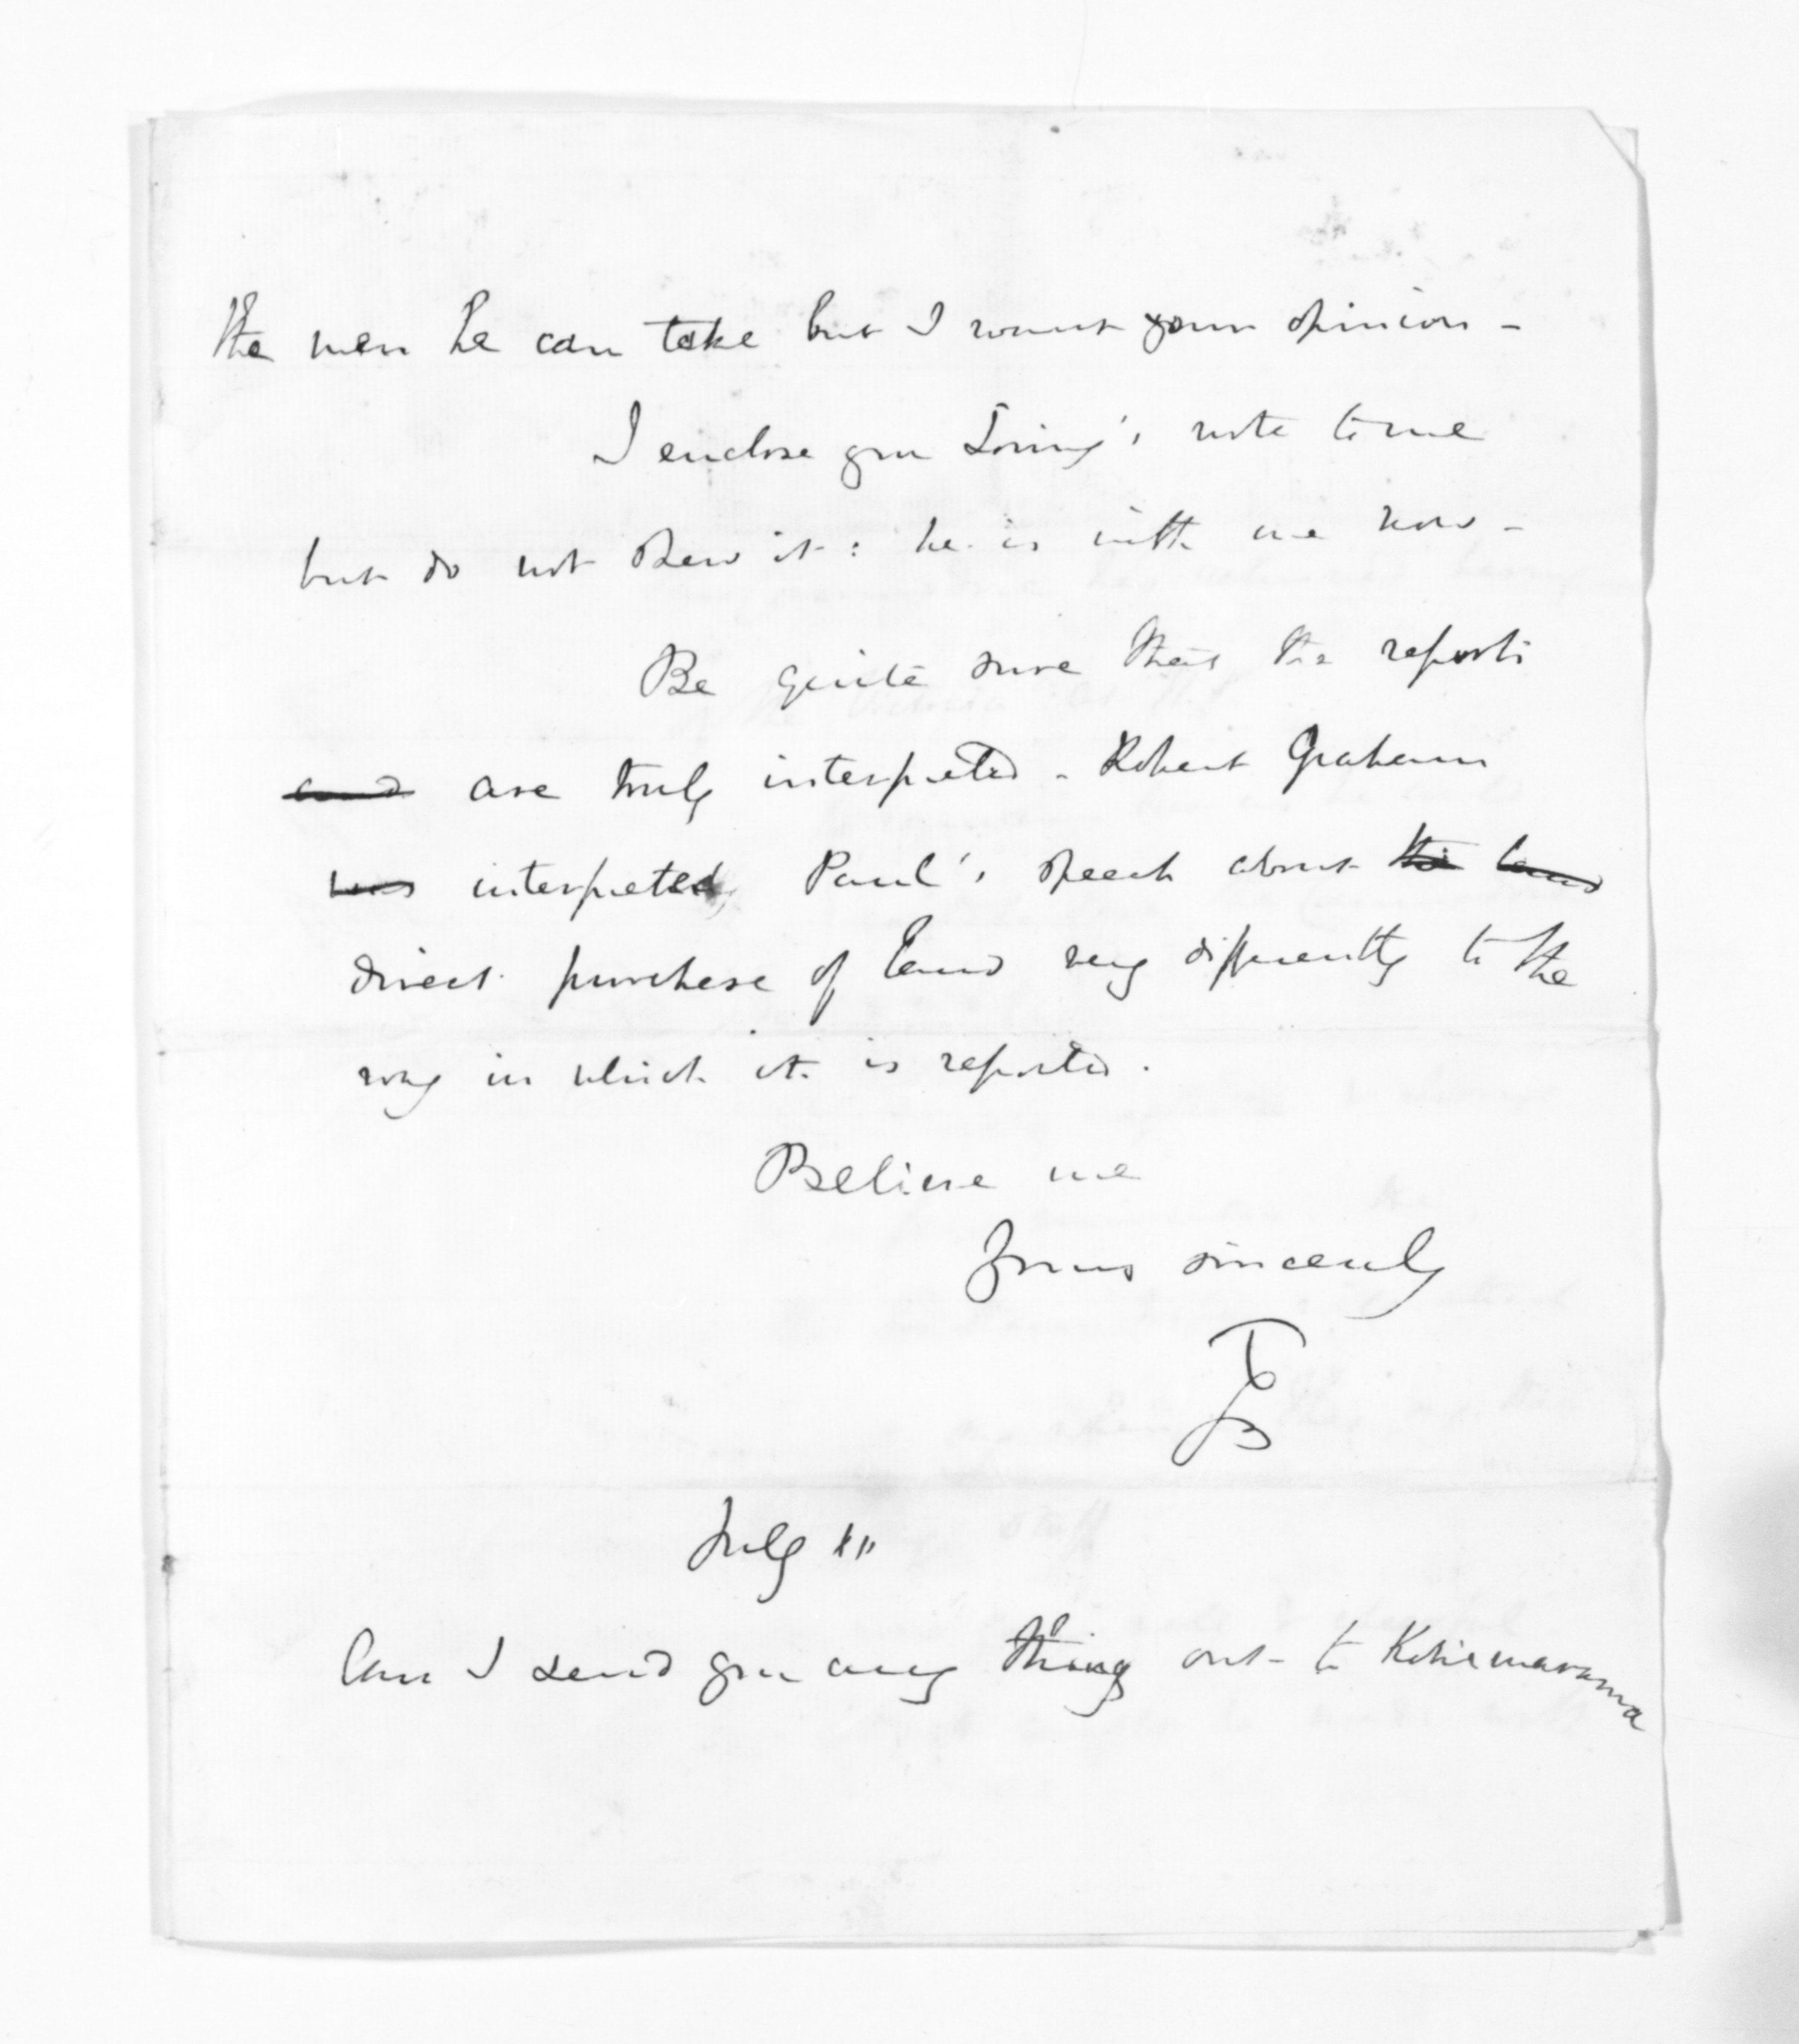 the men he can take but I want your opinion -
I enclose you Loring's note to me
but do not shew it: he is with me now -
Be quite sure that the reports
and are truly interpreted. Robert Graham
was interpreted, Paul's speech about the land
direct purchase of land very differently to the
way in which it is reported.
Believe me
Yours sincerely
TGB
July 11
Can I send you any thing out to Kohimarama